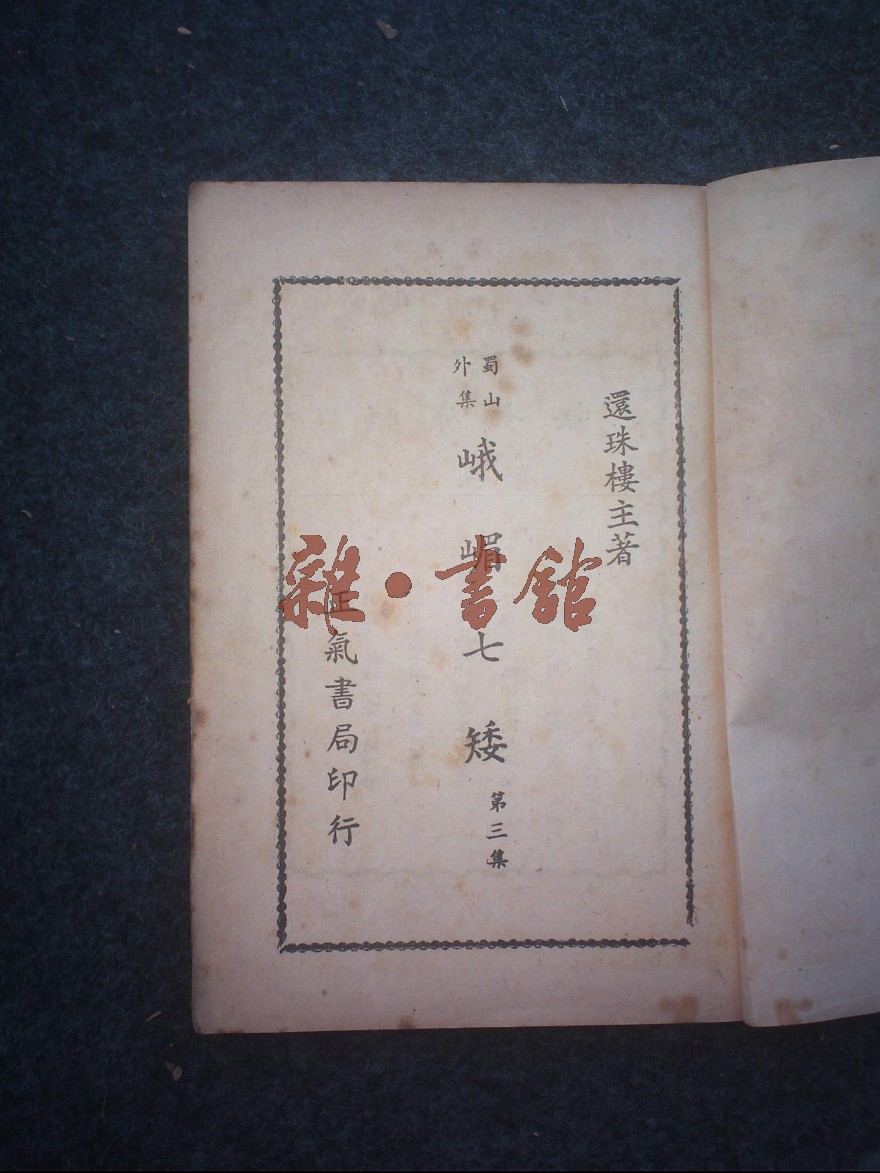 還珠樓主著
蜀山
外集
峨嵋七矮
第三集
正氣書局印行
雜·書館